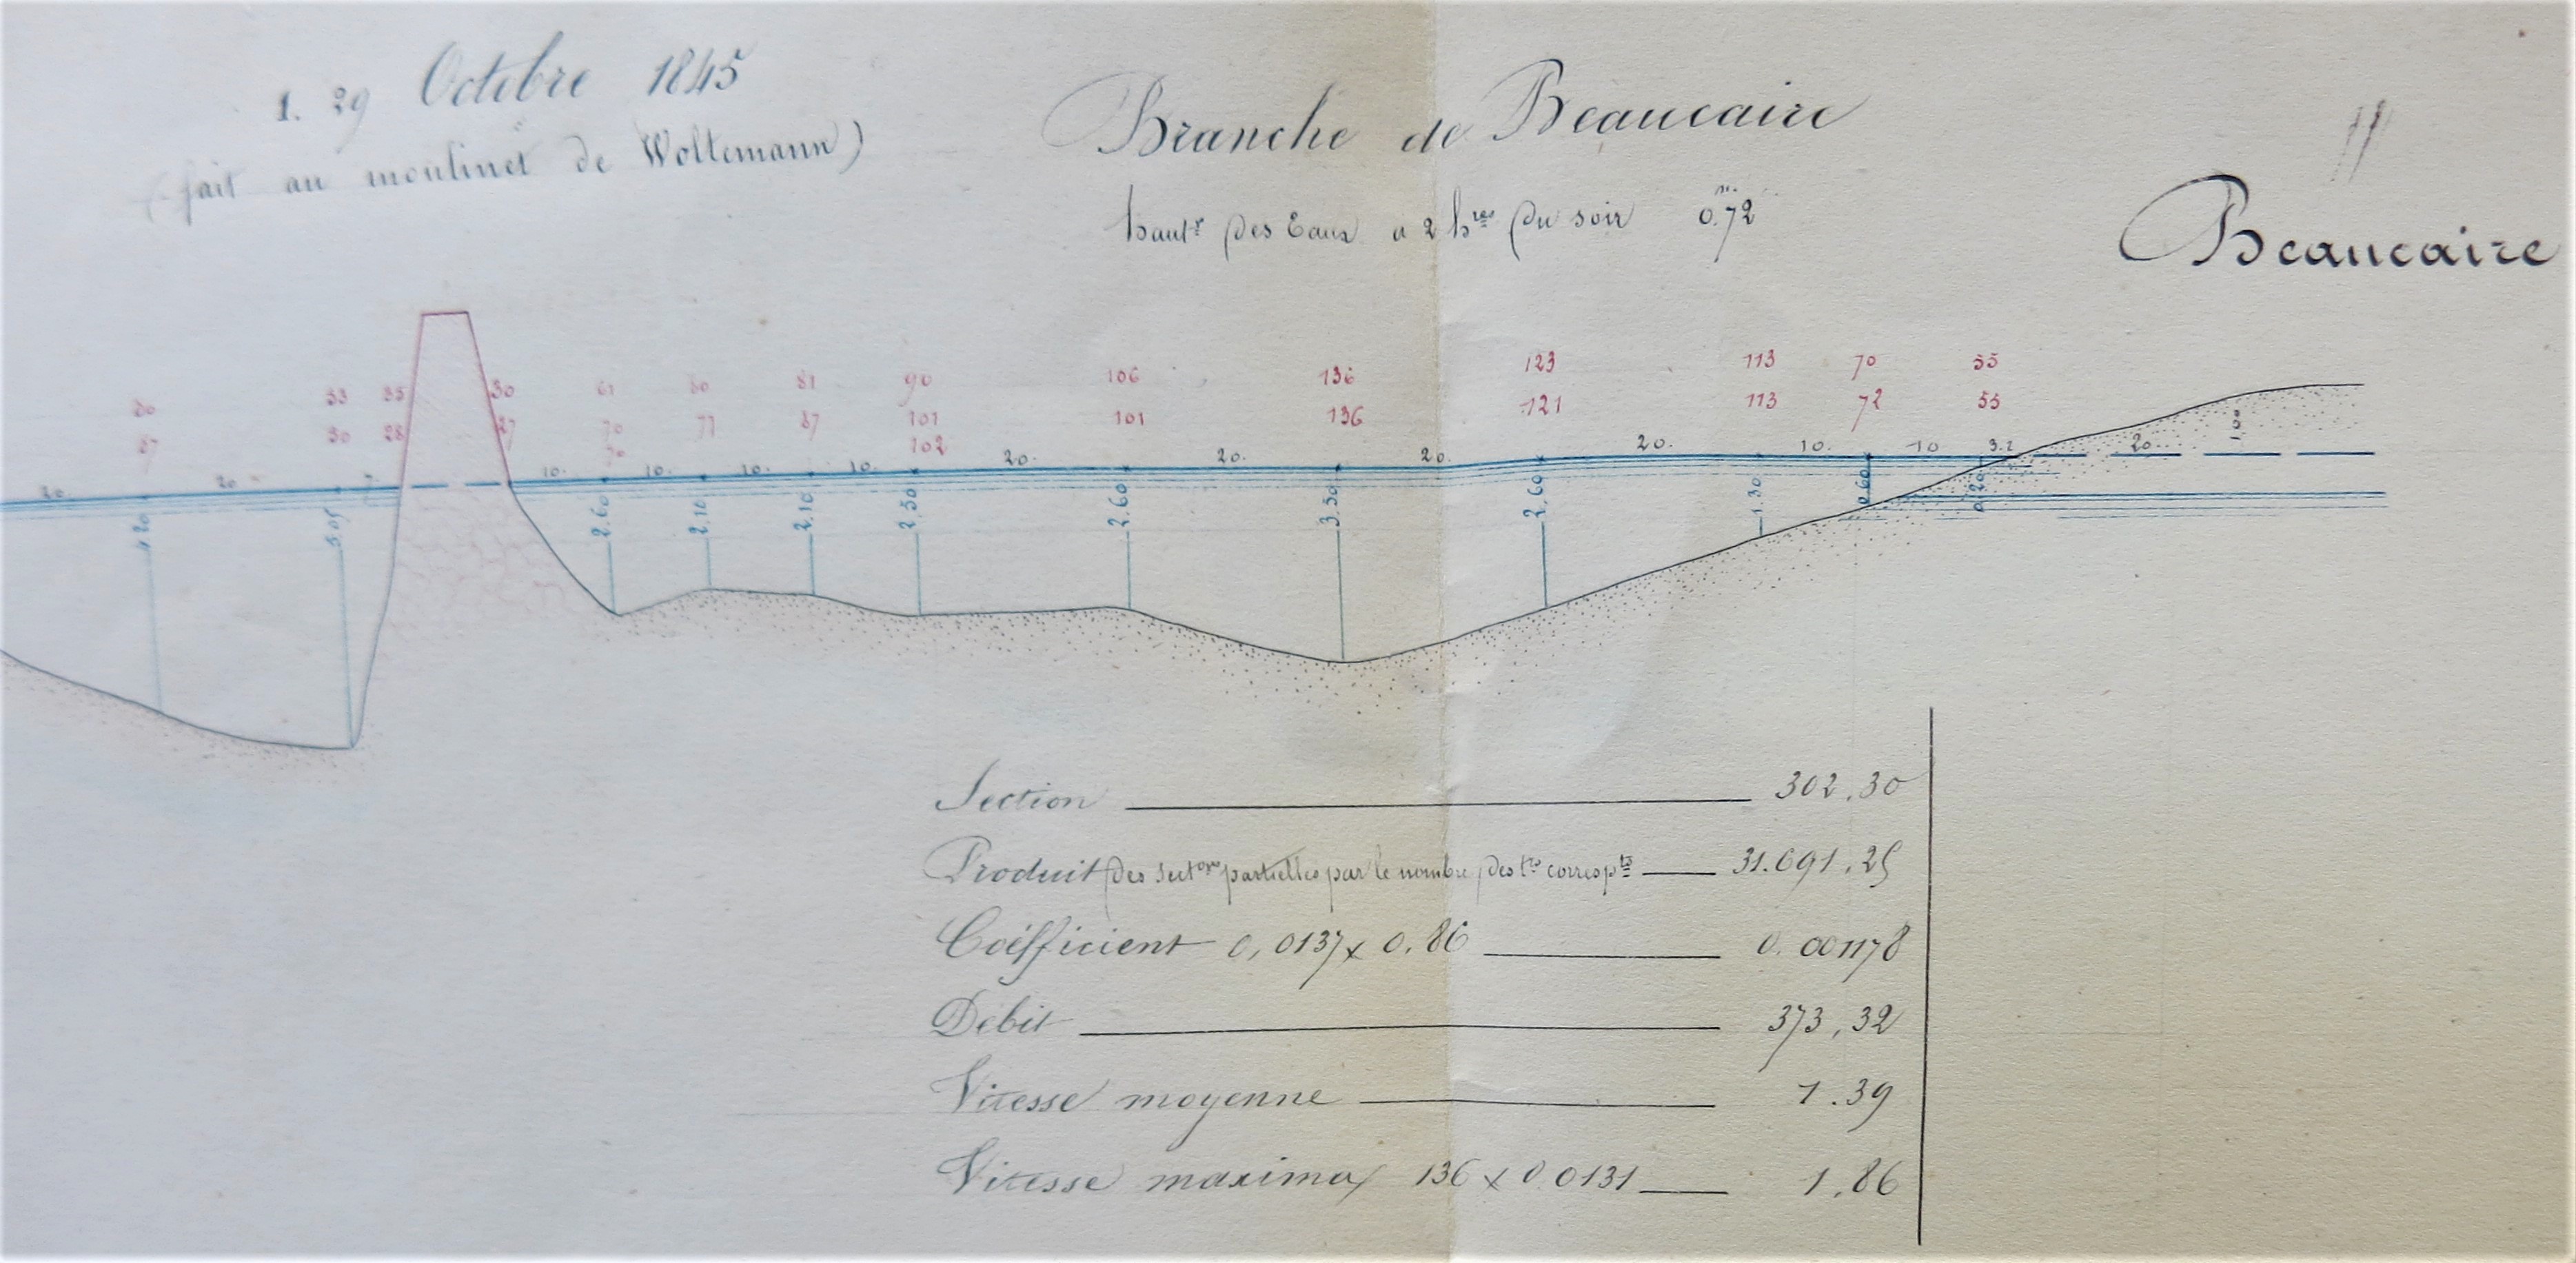 1. 29 Octobre 1845
(fait au moulinet de Woltemann)
Branche de Beaucaire
hautr des Eaux a 2 hres du soir 0.m72
Beaucaire
80 53 35 30 61 80 81 90 106 136 123 113 70 55
87 50 28 27 70 77 87 101 101 136 121 113 72 55
70 102
20. 20 7. 10. 10. 10. 10. 20. 20. 20. 20. 10. 10 3.2 20.
4.20 5.05 2.60 2.10 2.10 2.50 2.60 3.50 2.60 1.30 0.60 0.20
Section 302.30
Produit des sectons partielles par le nombre des trs correspts 31.691.25
Coéfficient 0,0137 x 0.86 0.001178
Débit 373,32
Vitesse moyenne 1.39
Vitesse maxima 136 x 0.0131 1,86